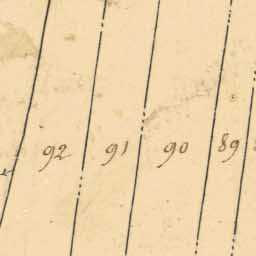 92 91 90 89